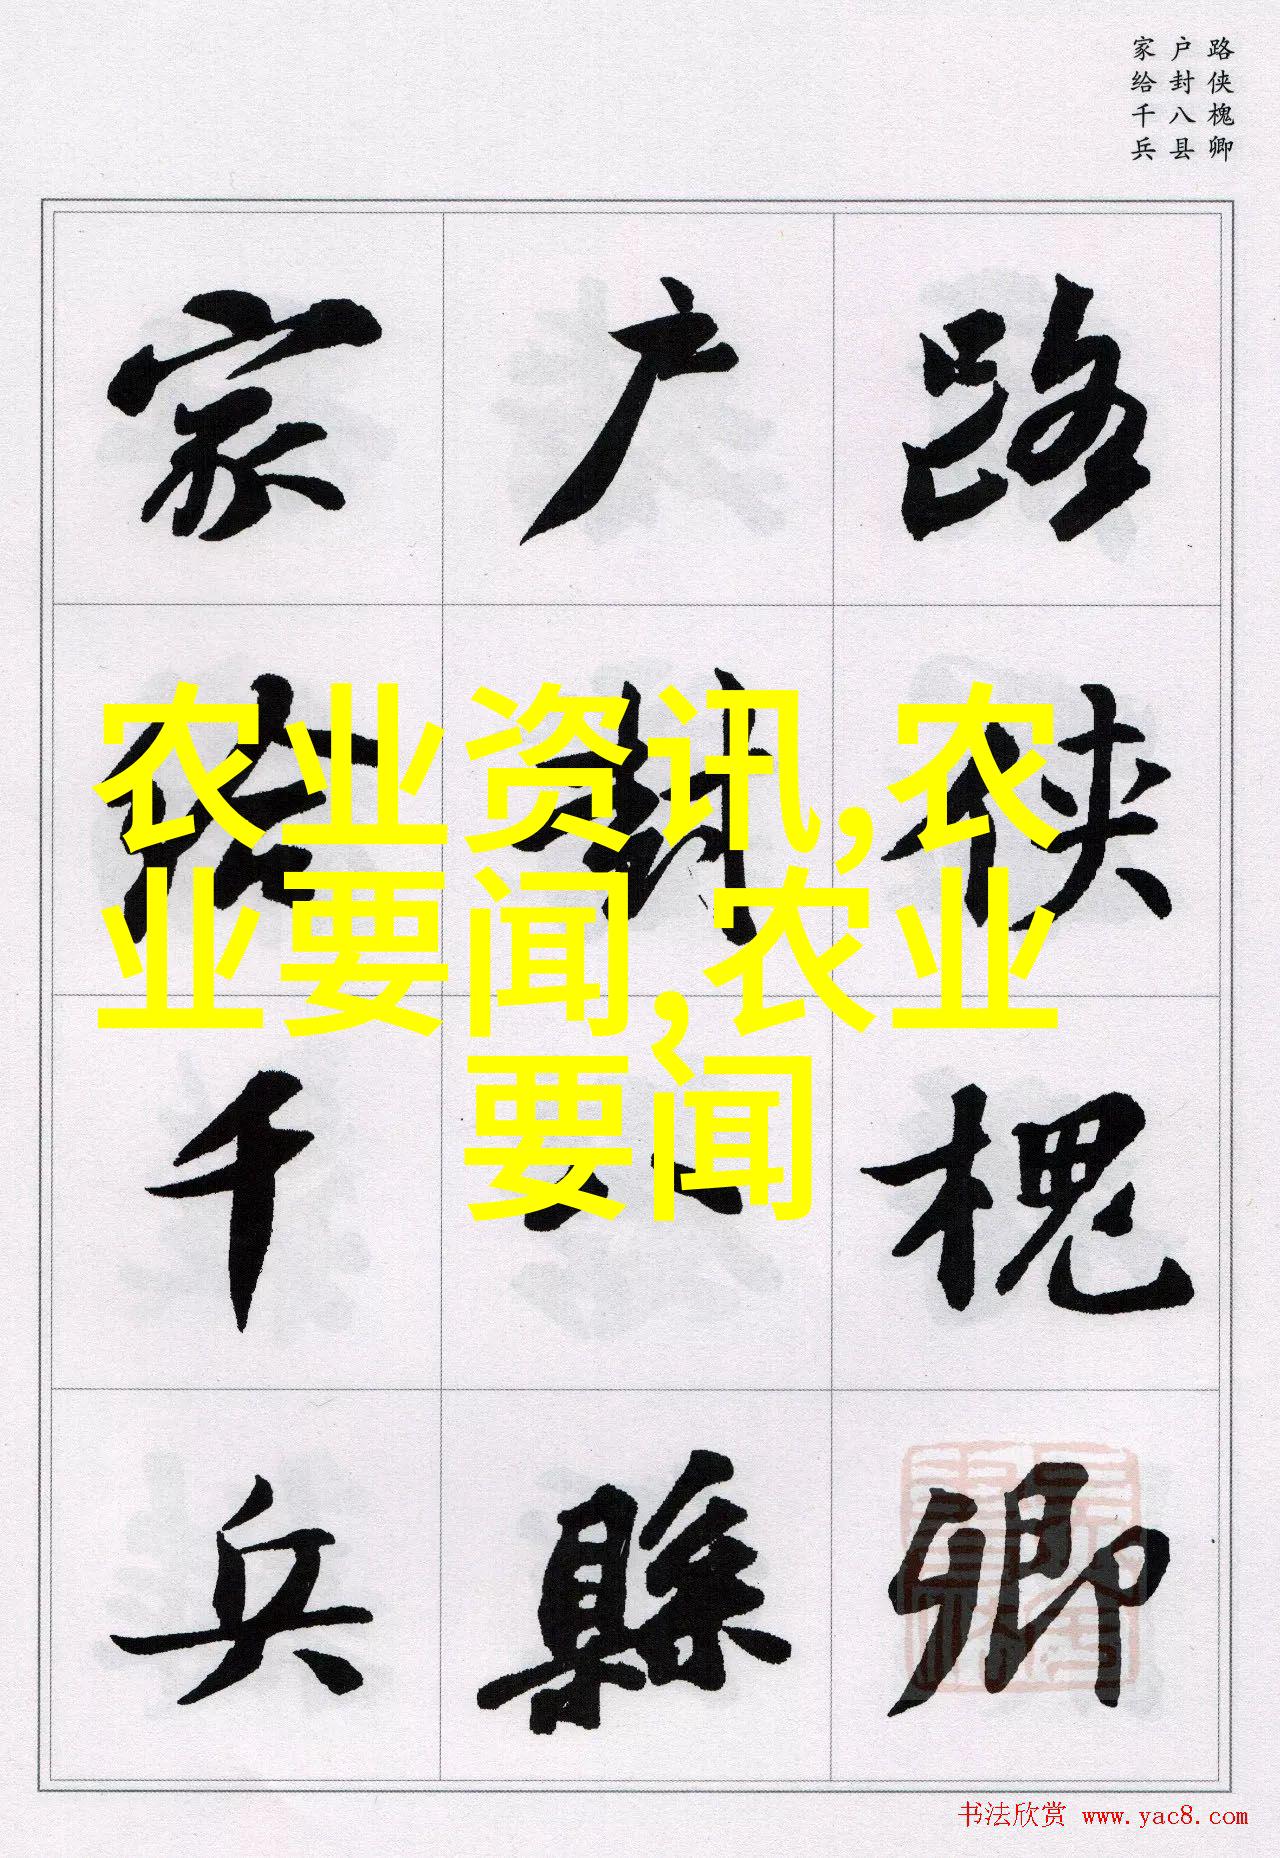 路侠槐卿
户封八县
家给千兵
路侠槐卿
户封八縣
家给千兵
农业资讯,农
业要闻,农业
要闻
书法欣赏 www.yac8.com